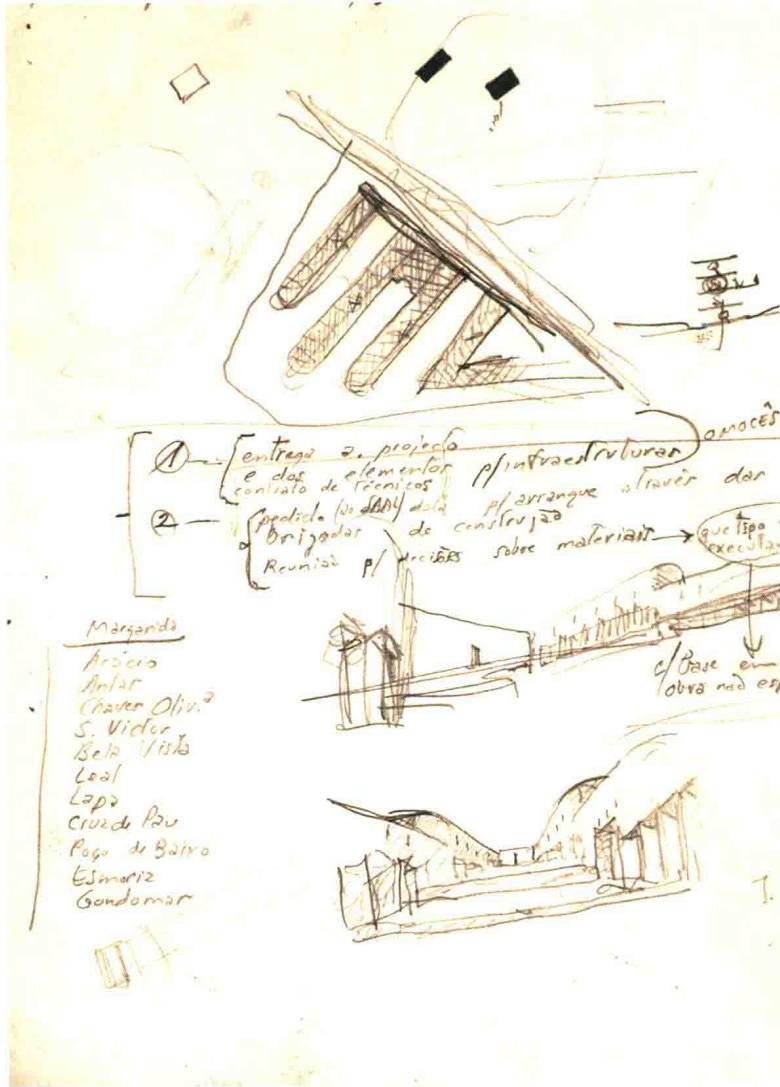 1 entrega a. projecto
e dos elementos p/ infraestruturas
contrato de técnicos
2 pedido (ao SAAL) p/ arranque através das
Brigadas de construção
Reunião p/ decisões sobre materiais → que tipo
c/ base em
obra não
Margarida
Antas
Chaves Oliv.ª
S. Victor
Bela Vista
Leal
Lapa
Cruz de Pau
Poço de Bairro
Esmoriz
Gondomar